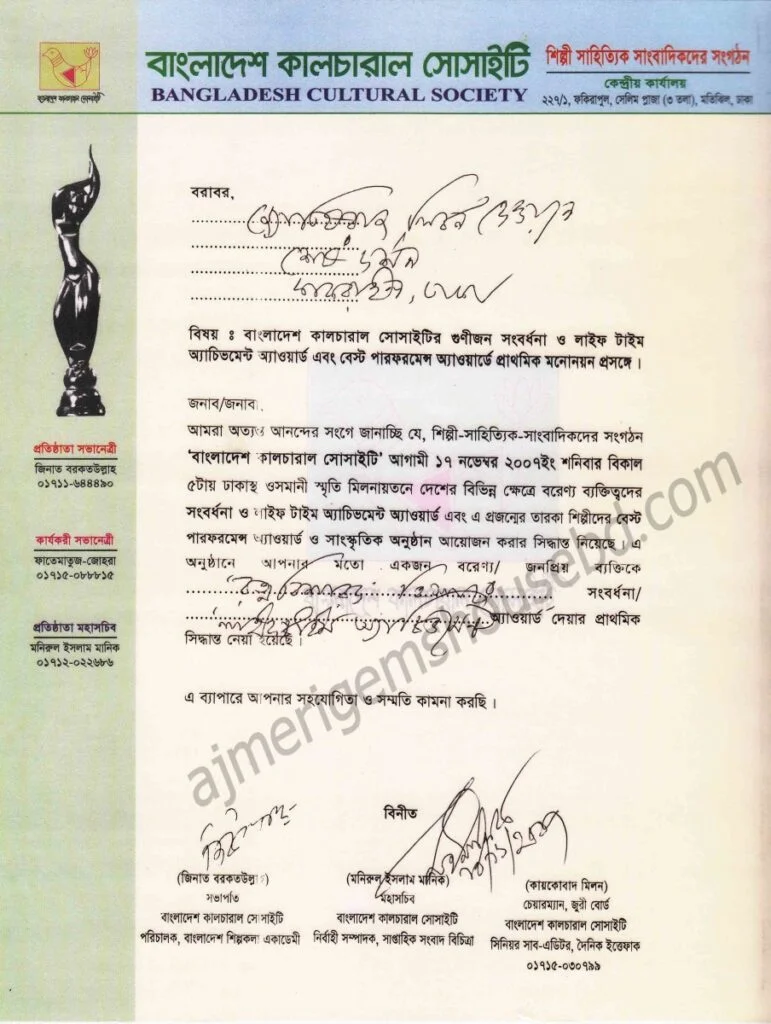 বাংলাদেশ কালচারাল সোসাইটি
BANGLADESH CULTURAL SOCIETY
শিল্পী সাহিত্যিক সাংবাদিকদের সংগঠন
কেন্দ্রীয় কার্যালয়
২২৭/১, ফকিরাপুল, সেলিম প্লাজা (৩ তলা), মতিঝিল, ঢাকা
বাংলাদেশ কালচারাল সোসাইটি
প্রতিষ্ঠাতা সভানেত্রী
জিনাত বরকতউল্লাহ
০১৭১১-৬৪৪৪৯০
কার্যকরী সভানেত্রী
ফাতেমাতুজ-জোহরা
০১৭১৫-০৮৮৮১৫
প্রতিষ্ঠাতা মহাসচিব
মনিরুল ইসলাম মানিক
০১৭১২-০২২৬৮৬
বরাবর,
লিটন দেওয়ান
বিষয় ঃ বাংলাদেশ কালচারাল সোসাইটির গুণীজন সংবর্ধনা ও লাইফ টাইম
অ্যাচিভমেন্ট অ্যাওয়ার্ড এবং বেস্ট পারফরমেন্স অ্যাওয়ার্ডে প্রাথমিক মনোনয়ন প্রসঙ্গে ।
জনাব/জনাবা,
আমরা অত্যন্ত আনন্দের সংগে জানাচ্ছি যে, শিল্পী-সাহিত্যিক-সাংবাদিকদের সংগঠন
'বাংলাদেশ কালচারাল সোসাইটি' আগামী ১৭ নভেম্বর ২০০৭ইং শনিবার বিকাল
৫টায় ঢাকাস্থ ওসমানী স্মৃতি মিলনায়তনে দেশের বিভিন্ন ক্ষেত্রে বরেণ্য ব্যক্তিত্বদের
সংবর্ধনা ও লাইফ টাইম অ্যাচিভমেন্ট অ্যাওয়ার্ড এবং এ প্রজন্মের তারকা শিল্পীদের বেস্ট
পারফরমেন্স অ্যাওয়ার্ড ও সাংস্কৃতিক অনুষ্ঠান আয়োজন করার সিদ্ধান্ত নিয়েছে। এ
অনুষ্ঠানে আপনার মতো একজন বরেণ্য/ জনপ্রিয় ব্যক্তিকে
সংবর্ধনা/
অ্যাওয়ার্ড দেয়ার প্রাথমিক
সিদ্ধান্ত নেয়া হয়েছে।
এ ব্যাপারে আপনার সহযোগিতা ও সম্মতি কামনা করছি ।
বিনীত
(জিনাত বরকতউল্লাহ)
সভাপতি
বাংলাদেশ কালচারাল সোসাইটি
পরিচালক, বাংলাদেশ শিল্পকলা একাডেমী
(মনিরুল ইসলাম মানিক)
মহাসচিব
বাংলাদেশ কালচারাল সোসাইটি
নির্বাহী সম্পাদক, সাপ্তাহিক সংবাদ বিচিত্রা
(কায়কোবাদ মিলন)
চেয়ারম্যান, জুরী বোর্ড
বাংলাদেশ কালচারাল সোসাইটি
সিনিয়র সাব-এডিটর, দৈনিক ইত্তেফাক
০১৭১৫-০৩০৭৯৯
ajmerigemshousebd.com